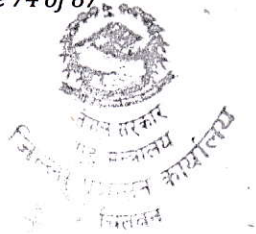 74 of 87
नेपाल सरकार
गृह मन्त्रालय
जिल्ला प्रशासन कार्यालय
चितवन